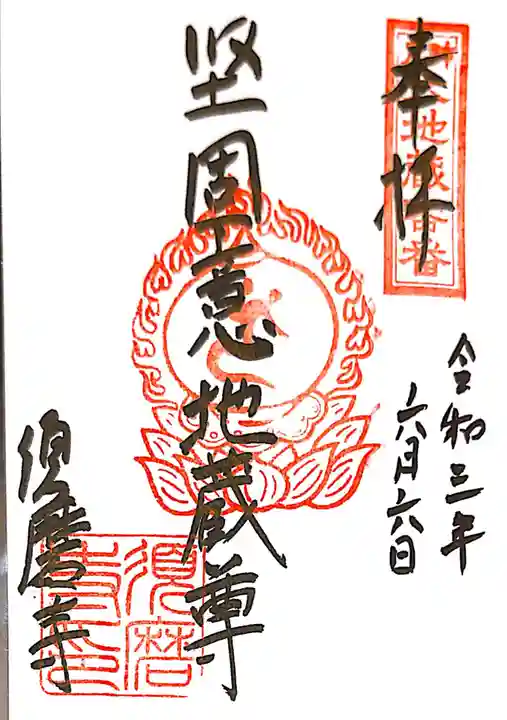 奉拝
令和三年
六月六日
堅固意地蔵尊
須磨寺
須磨
寺印